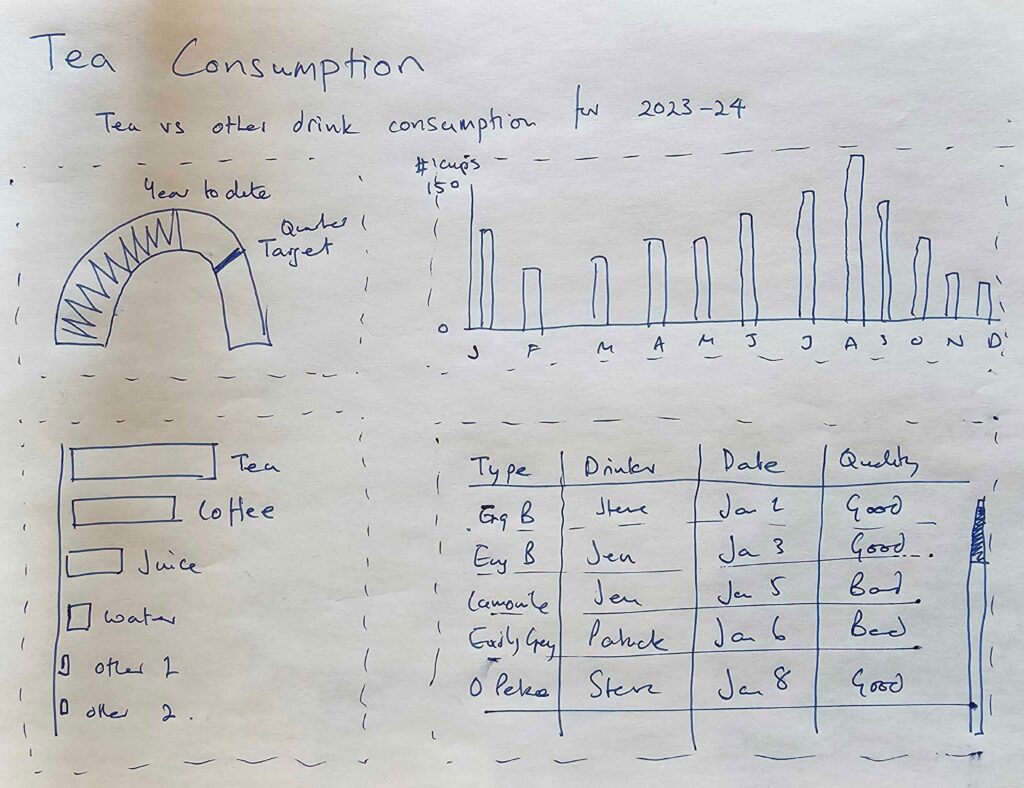 Tea Consumption
Tea vs other drink consumption for 2023-24
Year to date
Quarter
Target
# cups
150
0
J F M A M J J A S O N D
Tea
Coffee
Juice
water
other 1
other 2.
Type Drinker Date Quality
Eng B Steve Jan 2 Good
Eng B Jen Jan 3 Good
Camomile Jen Jan 5 Bad
Earl Grey Patrick Jan 6 Bad
O Peko Steve Jan 8 Good